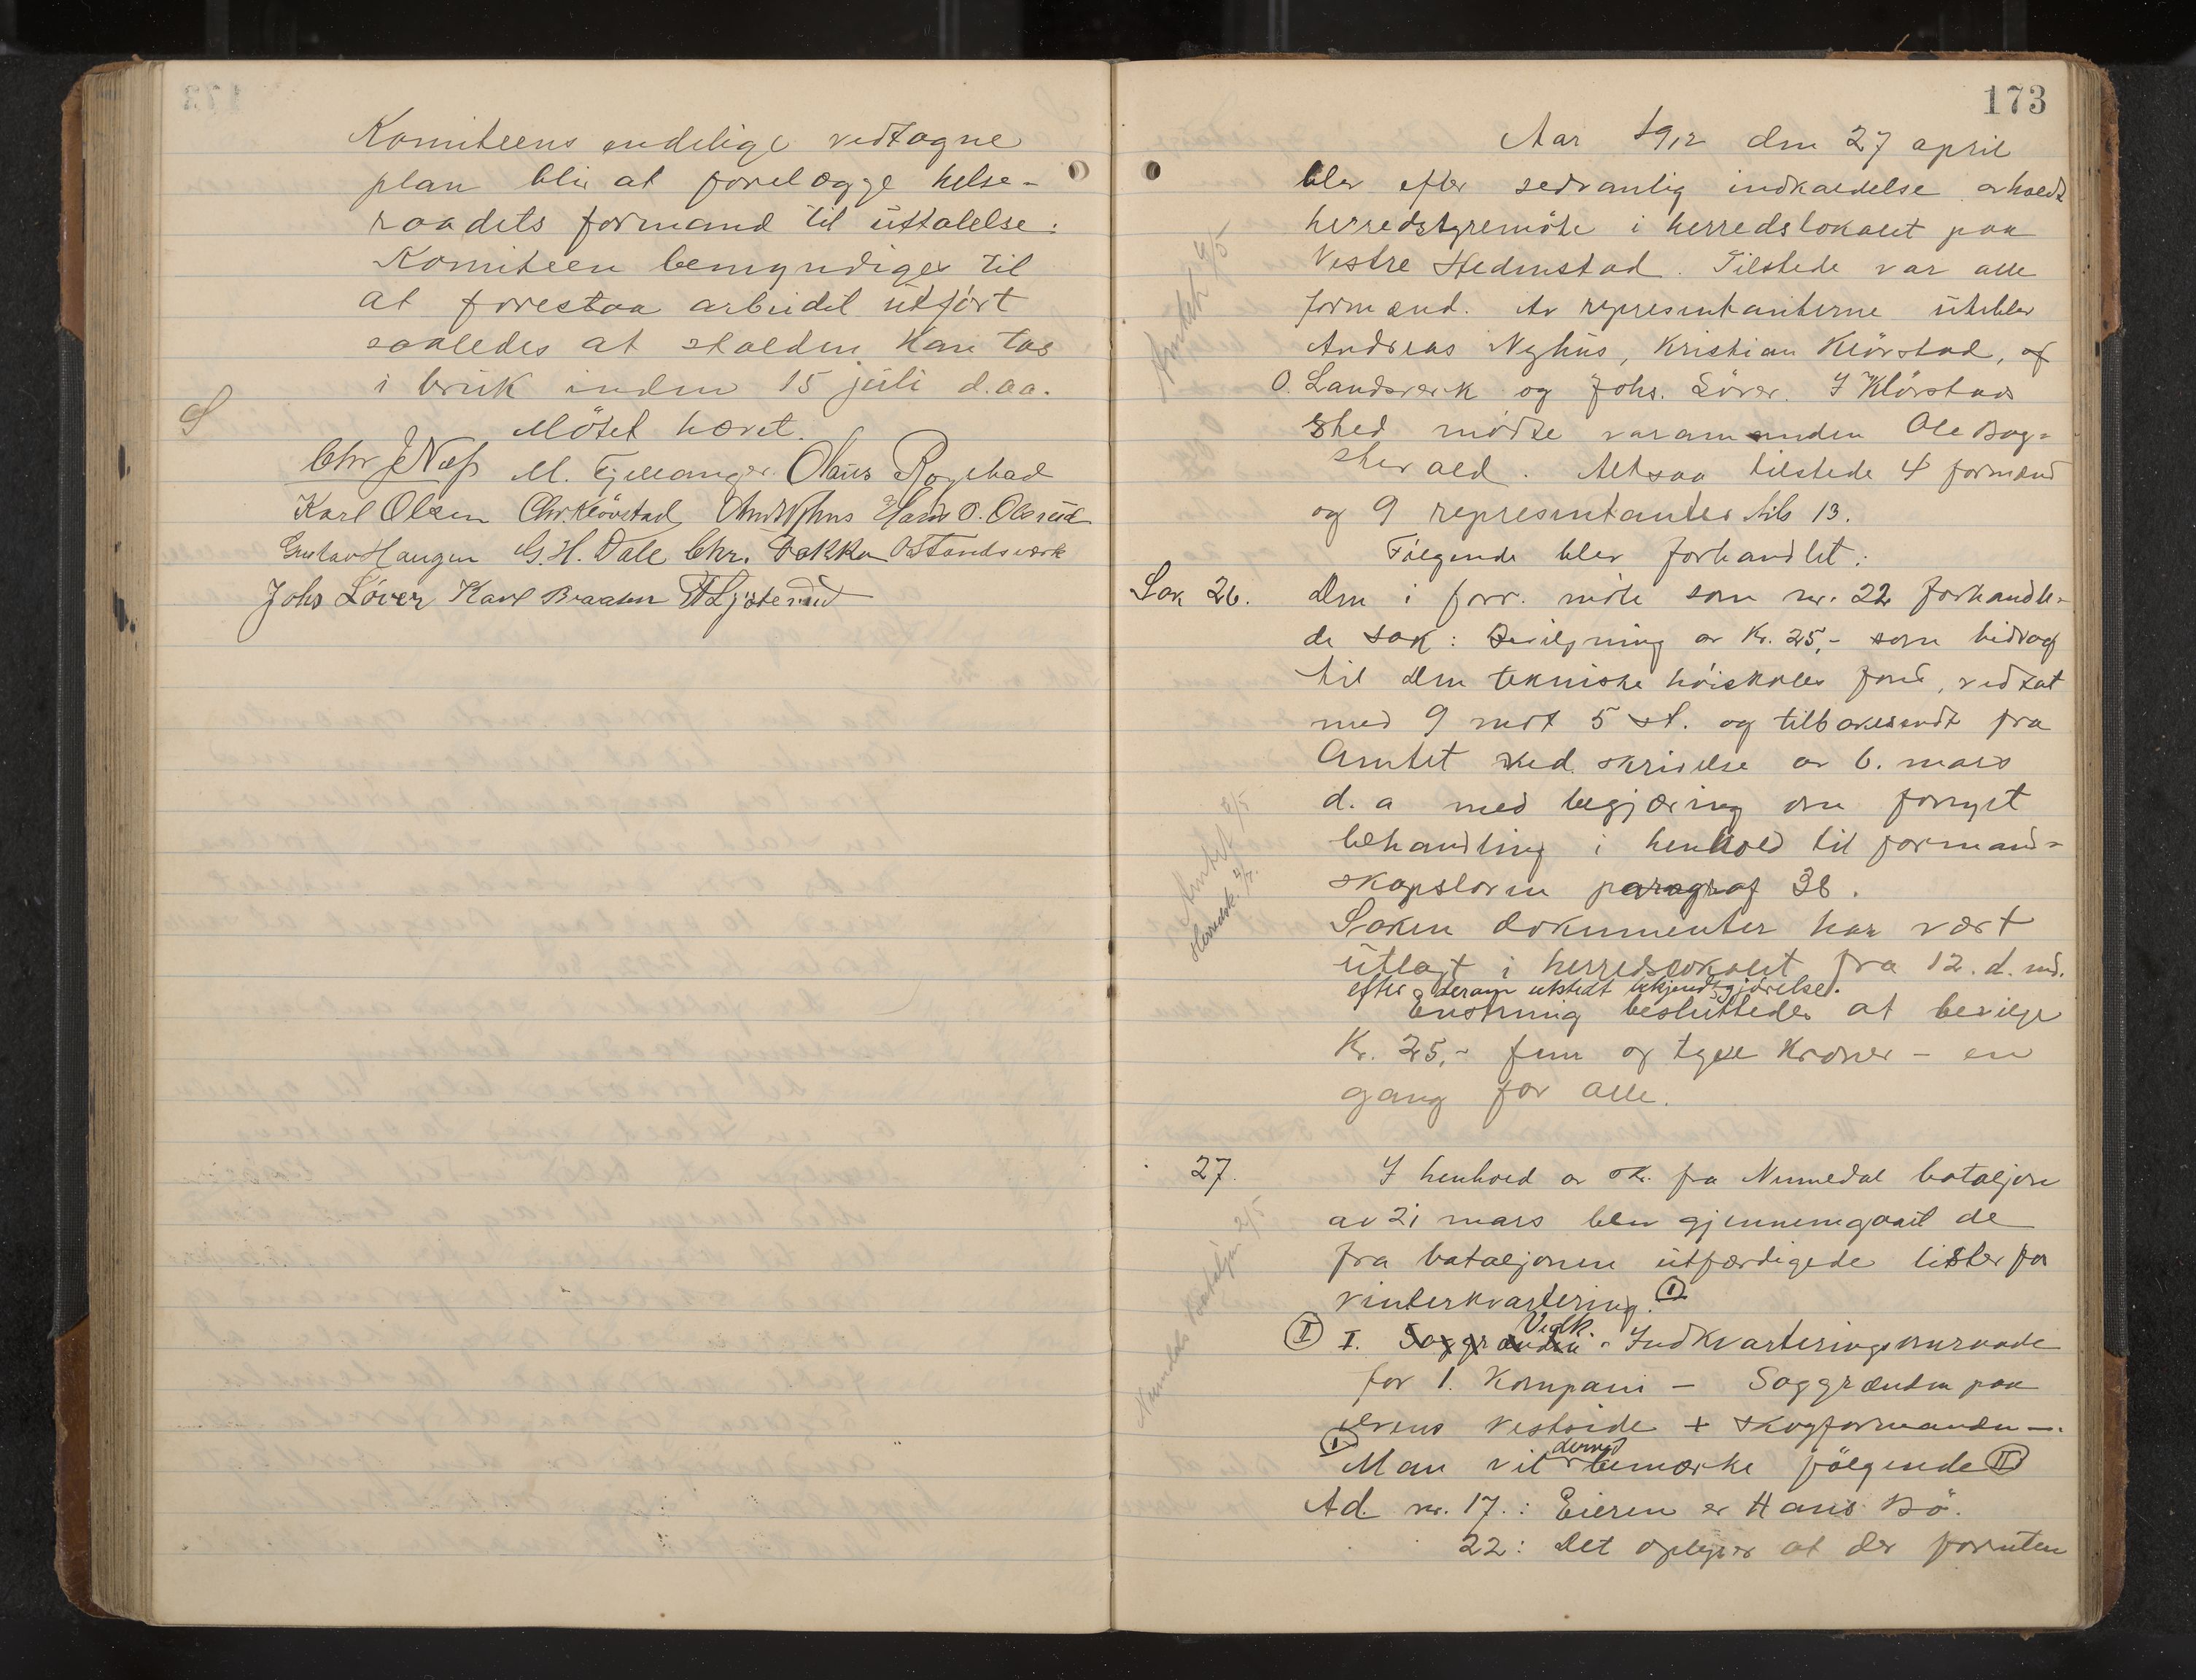 Komiteens endelige vedtagne
plan blir at forelægge helse-
raadets formand til üttalelse.
Komiteen bemyndiges til
at forestaa arbeidet ütført
saaledes at stalden kan tas
i brük inden 15 jüli d.aa.
Mötet hævet.
Chr J Næss M. Fjellanger. Olaus Rogstad
Karl Olsen Chr. Klövstad Hans O. Olsrüd
Gustav Haugen G. H. Dale Chr. Bakka O Landsværk
Johs Løver Karl Braaten
173
Aar 1912 den 27 april
blev efter sedvanlig indkaldelse avholdt
herredstyremöte i herredslokalet paa
Vestre Hedenstad. Tilstede var alle
formænd. Av representanterne üteblev
Andreas Nyhüs, Kristian Klövstad, af
O. Landsverk og Johs. Löver. I Klövstads
sted mödte varamanden Ole Bag-
sterald. Altsaa tilstede 4 formænd
og 9 representanter tils 13.
Fölgende blev forhandlet:
Sak 26. Den i forr. möte som nr. 22 forhandle-
de sak: Bevilgning av Kr. 25,- som bidrag
til den tekniske höiskoles fond, vedtat
med 9 mot 5 st. og tilbakesendt fra
Amtet ved skrivelse av 6. mars
d. a med begjæring om fornyet
behandling i henhold til formand-
skapsloven paragraf 36.
Saken dokumenter har vært
ütlagt i herredslokalet fra 12. d. md.
efter derom utstedt bekjendtgjörelse.
Enstemmig beslüttedes at bevilge
Kr. 25,- fem og tyve Kroner - en
gang for alle.
27. I henhold av sk. fra Numedal bataljon
av 21 mars blev gjennemgaaet de
fra bataljonen ütfærdigede lister for
vinterkvartering. I
II I. Saggrænden Vedk. Indkvarteringsomraade
for 1. Kompani - Saggrænden paa
elvens vestside + skogformanden -.
I Man vil dermed bemærke fölgende II
Ad. nr. 17.: Eieren er Hans Bö.
22: Det oplyses at der foruten
Amtet 4/5
Amtet 2/5
Herredsk. 4/7.
Numedals Bataljon 2/5